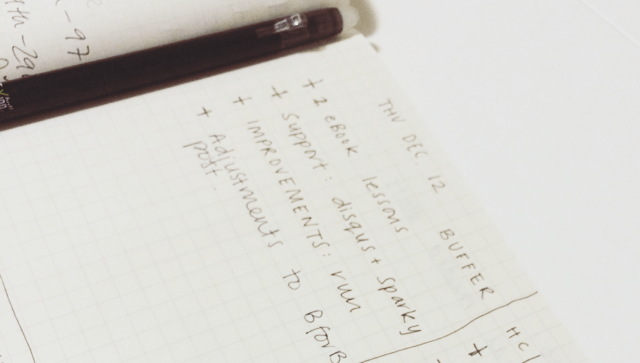 THU DEC 12 BUFFER
+ 2 eBook lessons
+ Support: disqus + sparky
+ IMPROVEMENTS: run
+ Adjustments to BforB
post.
HC
+
-97